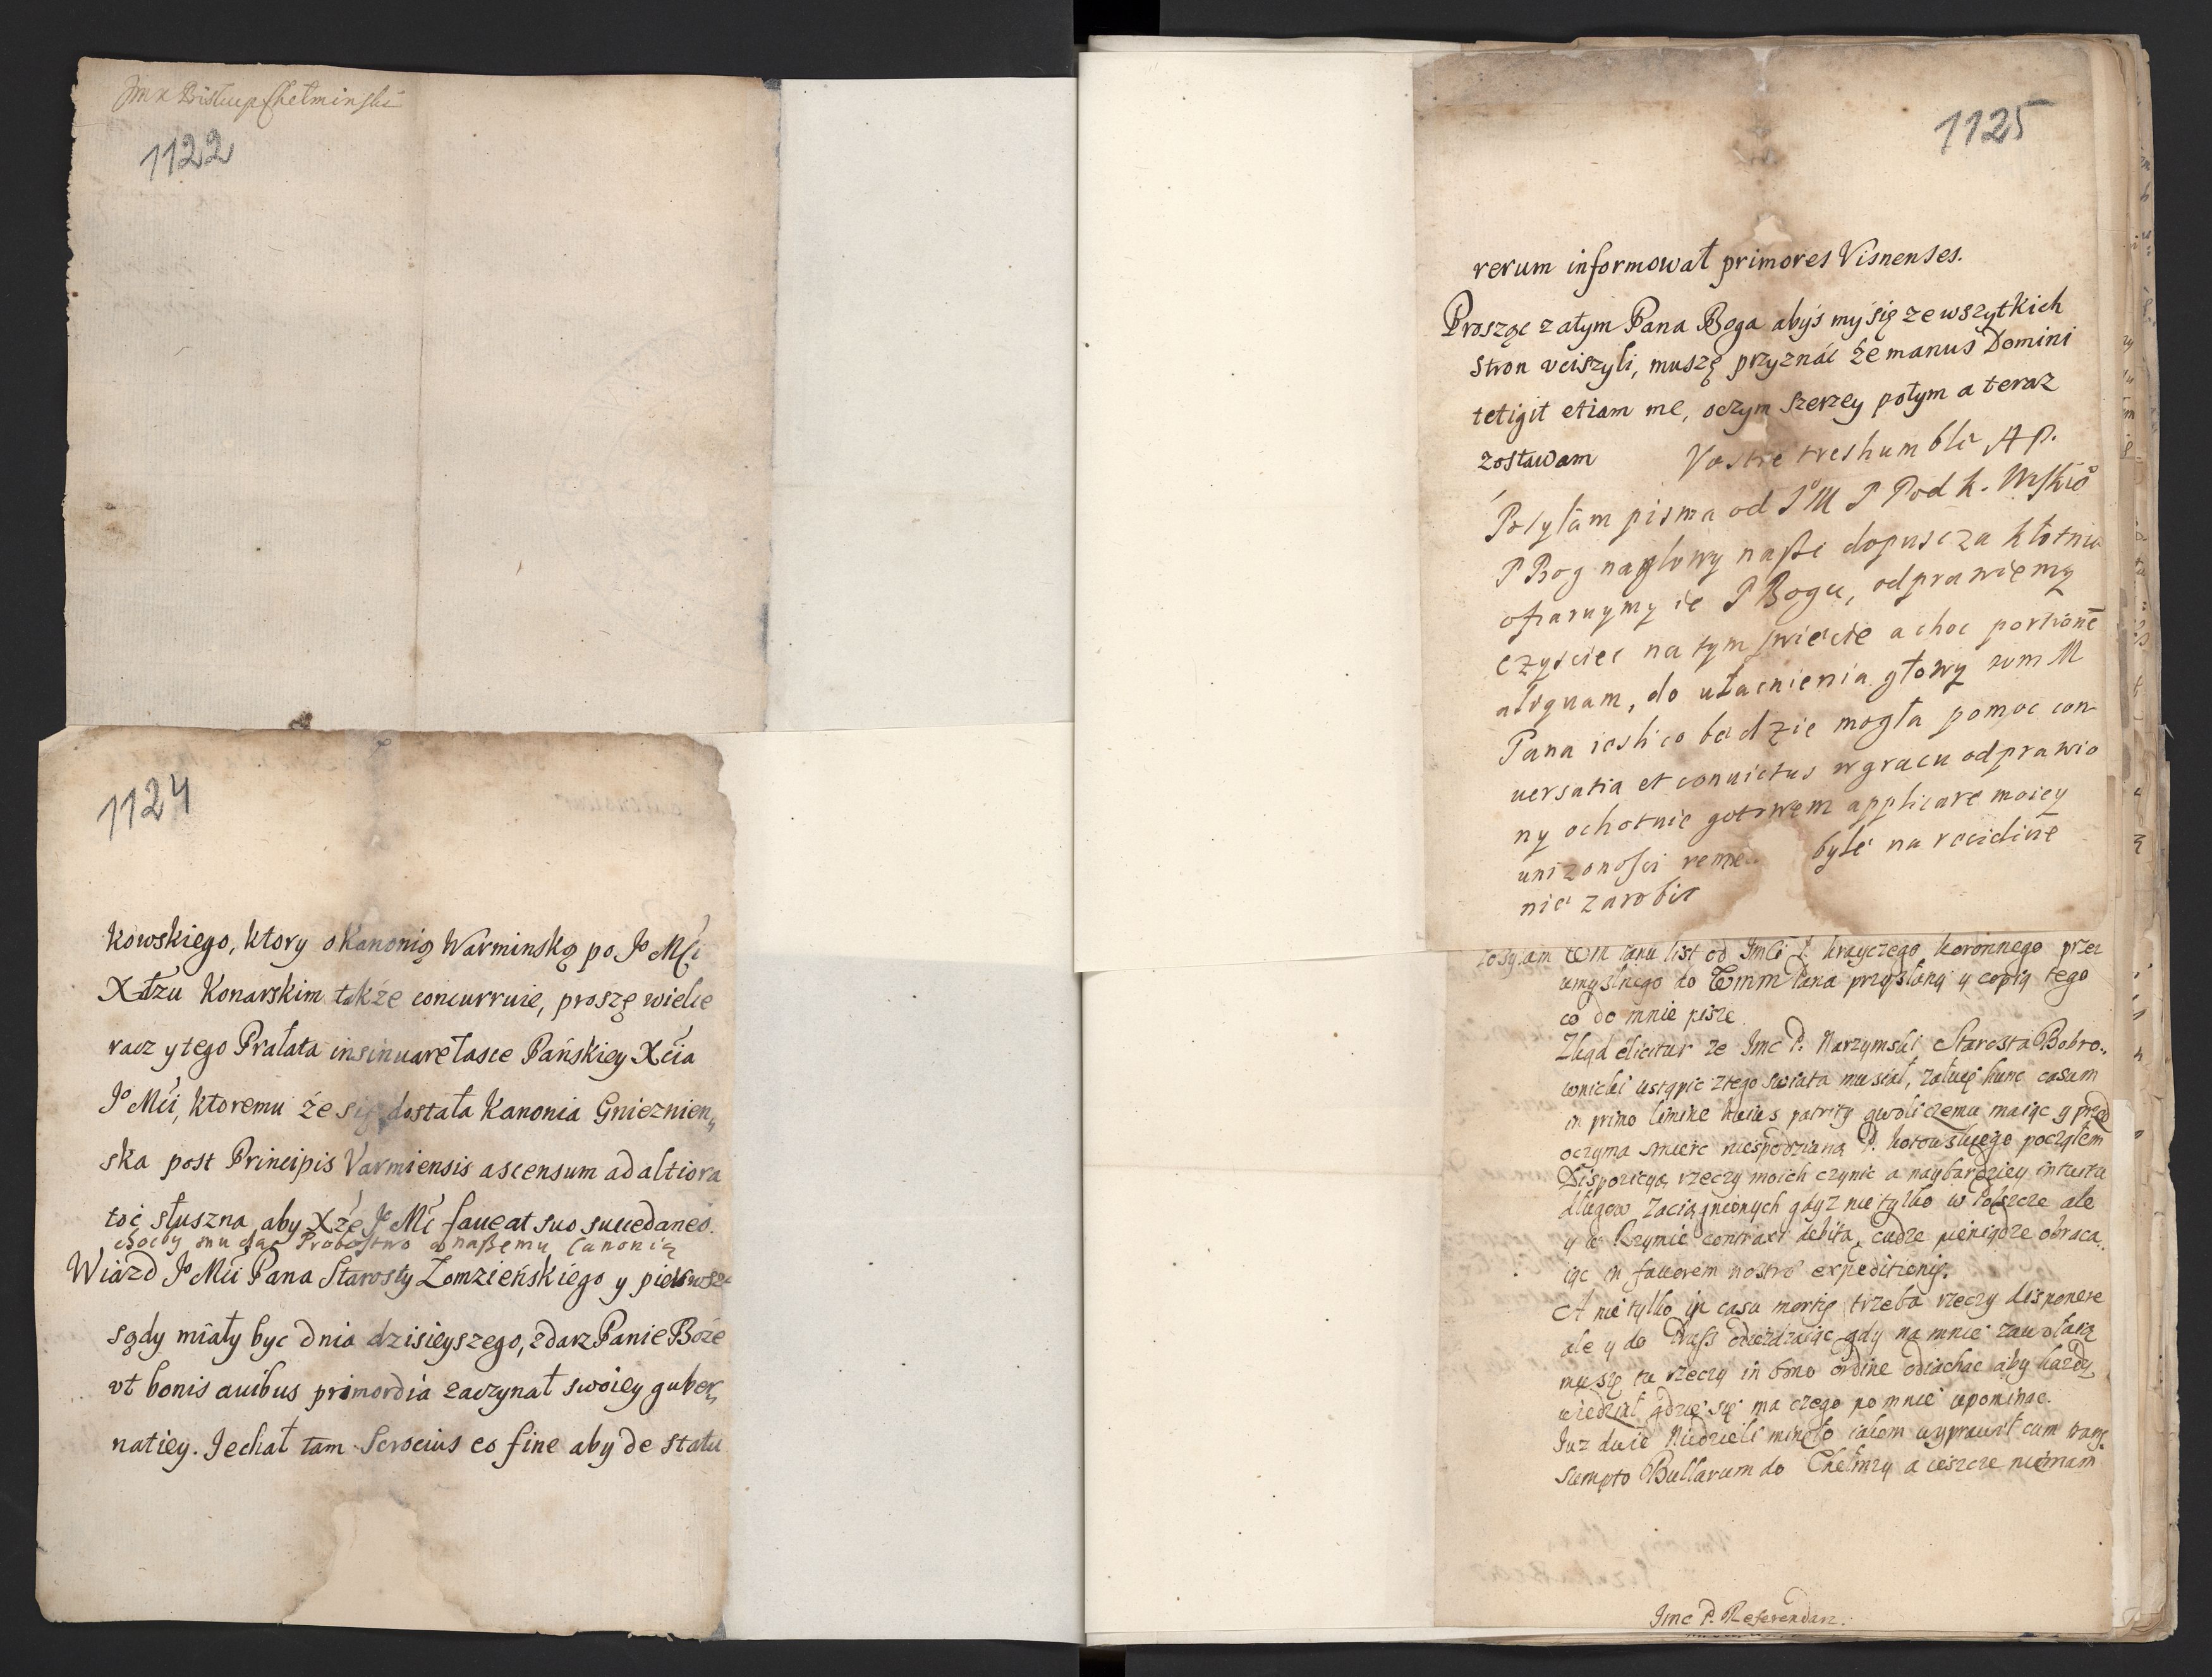 Jmx Biskup Chełminski
1122
1124
kowskiego, ktory o Kanonią Warminską po Jo Mći
Xdzu Konarskim także concurruie, proszę wielce
racz y tego Prałata insinuare łasce Pańskiey Xćia
Jo Mći, ktoremu że się dostała Kanonia Gnieznien„
ska post Principis Varmiensis ascensum ad altiora
toć słuszna aby Xże Jo Mć faueat suo succedaneo.
choćby mu dać Probostwo a naßemu Canonią
Wiazd Jo Mći Pana Starosty Łomzieńskiego y pierwsze
sądy miały byc dnia dzisieyszego, zdarz Panie Boże
vt bonis auibus primordia zaczynał swoiey guber„
natiey. Jechał tam Scrocius eo fine aby de statu
1125
rerum informował primores Visnenses.
Prosząc zatym Pana Boga abyś my się ze wszytkich
stron vciszyli, muszę przyznać że manus Domini
tetigit etiam me, oczym szerzey potym a teraz
zostawam Vostre treshumble AP.
Posyłam pisma od Jo M P Podk.
P Bog nagłowy naße dopuscza kłotnie
ofiaruymy ie P Bogu, odprawiemy
czysciec na tym swiecie a choc portione
aliquam, do ułacnienia głowy wm M
Pana iesli co będzie mogła pomoc con
uersatia et conuictus w gracu odprawio
ny ochotnie gotowem applicare moiey
unizonosci reme byle na recidiue
nie zarobic
Posyłam Wm Panu list od Jmći P. krayczego koronnego przez
umyslnego do Wmm Pana przysłany y copią tego
co do mnie pisze.
Zkąd elicitur ze Jmc P. Narzymski Starosta Bobro„
wnicki ustąpic z tego swiata musiał, załuię hunc casum
in primo limine huius patriy gwoli czemu maiąc y przed
oczyma smierc niespodzianą P. kotowskiego począłem
Dispozicyą rzeczy moich czynic a naybardziey intuitu
długow zaciągnionych gdyz nie tylko w Polszcze ale
y w Rzymie contraxi debita, cudze pieniądze obraca„
iąc in fauorem nostrae expeditionis.
A nie tylko in casu mortis trzeba rzeczy disponere
ale y do Pruss odiezdzaiąc gdy na mnie zawołaią
muszę tu rzeczy in bono ordine odiachac aby kazdy
wiedział gdzie się ma czego po mnie upominac.
Juz dwie Niedzieli mineło iakem wyprawił cum tran„
sumpto Bullarum do Chełmzy a ieszcze niemam
Jmc P. Referendarz.